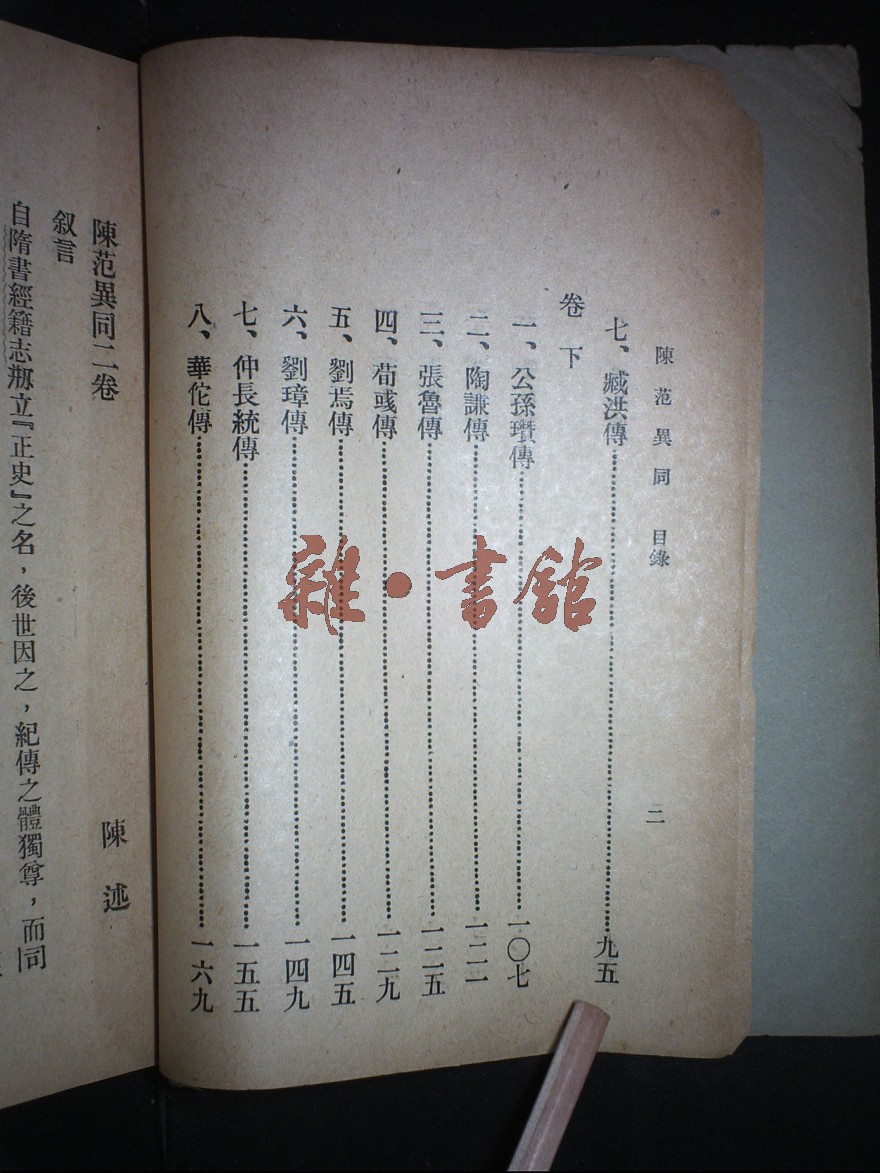 陳范異同　目錄
二
七、臧洪傳……九五
卷下
一、公孫瓚傳……一〇七
二、陶謙傳……一二一
三、張魯傳……一二五
四、荀彧傳……一二九
五、劉焉傳……一四五
六、劉璋傳……一四九
七、仲長統傳……一五五
八、華佗傳……一六九
陳范異同二卷
陳述
叙言
自隋書經籍志刱立『正史』之名，後世因之，紀傳之體獨尊，而同
雜·書館